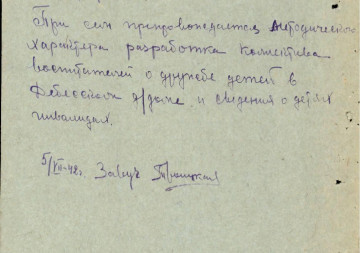 При сем препровождается методического
характера разработка коллектива
воспитателей о дружбе детей в
д/доме и сведения о детях
инвалидах.
5/XII-42г. Завуч